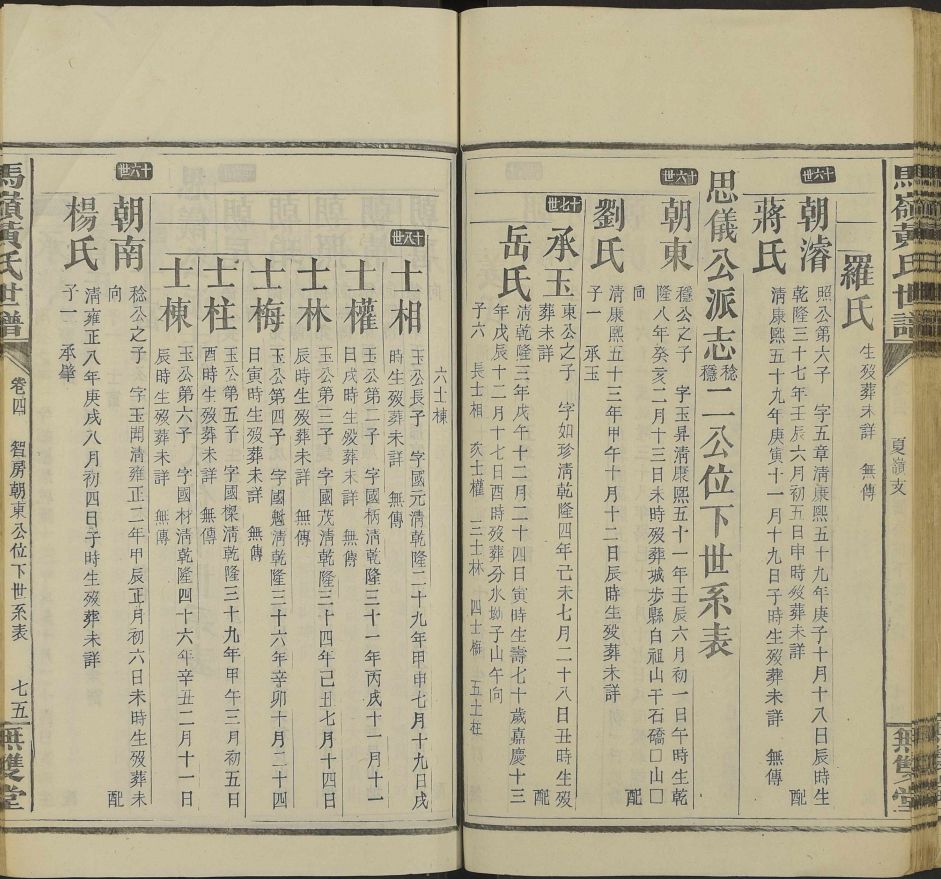 羅氏
生歿葬未詳　無傳
十六世
朝濬
照公第六子　字五章清康熙五十九年庚子十月十八日辰時生
乾隆三十七年壬辰六月初五日申時歿葬未詳　配
蔣氏
清康熙五十九年庚寅十一月十九日子時生歿葬未詳　無傳
思儀公派志稔穩二公位下世系表
十六世
朝東
穩公之子　字玉昇清康熙五十一年壬辰六月初一日午時生乾
隆八年癸亥二月十三日未時歿葬城步縣白祖山干石磽□山□
向　配
劉氏
清康熙五十三年甲午十月十二日辰時生歿葬未詳
子一　承玉
十七世
承玉
東公之子　字如珍清乾隆四年己未七月二十八日丑時生歿
葬未詳　配
岳氏
清乾隆三年戊午十二月二十四日寅時生壽七十歲嘉慶十三
年戊辰十二月十七日酉時歿葬分水坳子山午向
子六　長士相　次士權　三士林　四士梅　五士柱
夏嶺支
無雙堂
六士棟
十八世
士相
玉公長子　字國元清乾隆二十九年甲申七月十九日戌
時生歿葬未詳　無傳
士權
玉公第二子　字國柄清乾隆三十一年丙戌十二月十一
日戌時生歿葬未詳　無傳
士林
玉公第三子　字國茂清乾隆三十四年己丑七月十四日
辰時生歿葬未詳　無傳
士梅
玉公第四子　字國魁清乾隆三十六年辛卯十月二十四
日寅時生歿葬未詳　無傳
士柱
玉公第五子　字國樑清乾隆三十九年甲午三月初五日
酉時生歿葬未詳　無傳
士棟
玉公第六子　字國材清乾隆四十六年辛丑二月十一日
辰時生歿葬未詳　無傳
十六世
朝南
稔公之子　字玉閗清雍正二年甲辰正月初六日未時生歿葬未
向　配
楊氏
清雍正八年庚戌八月初四日子時生歿葬未詳
子一　承肇
馬嶺黃氏世譜
卷四　智房朝東公位下世系表　七五
無雙堂